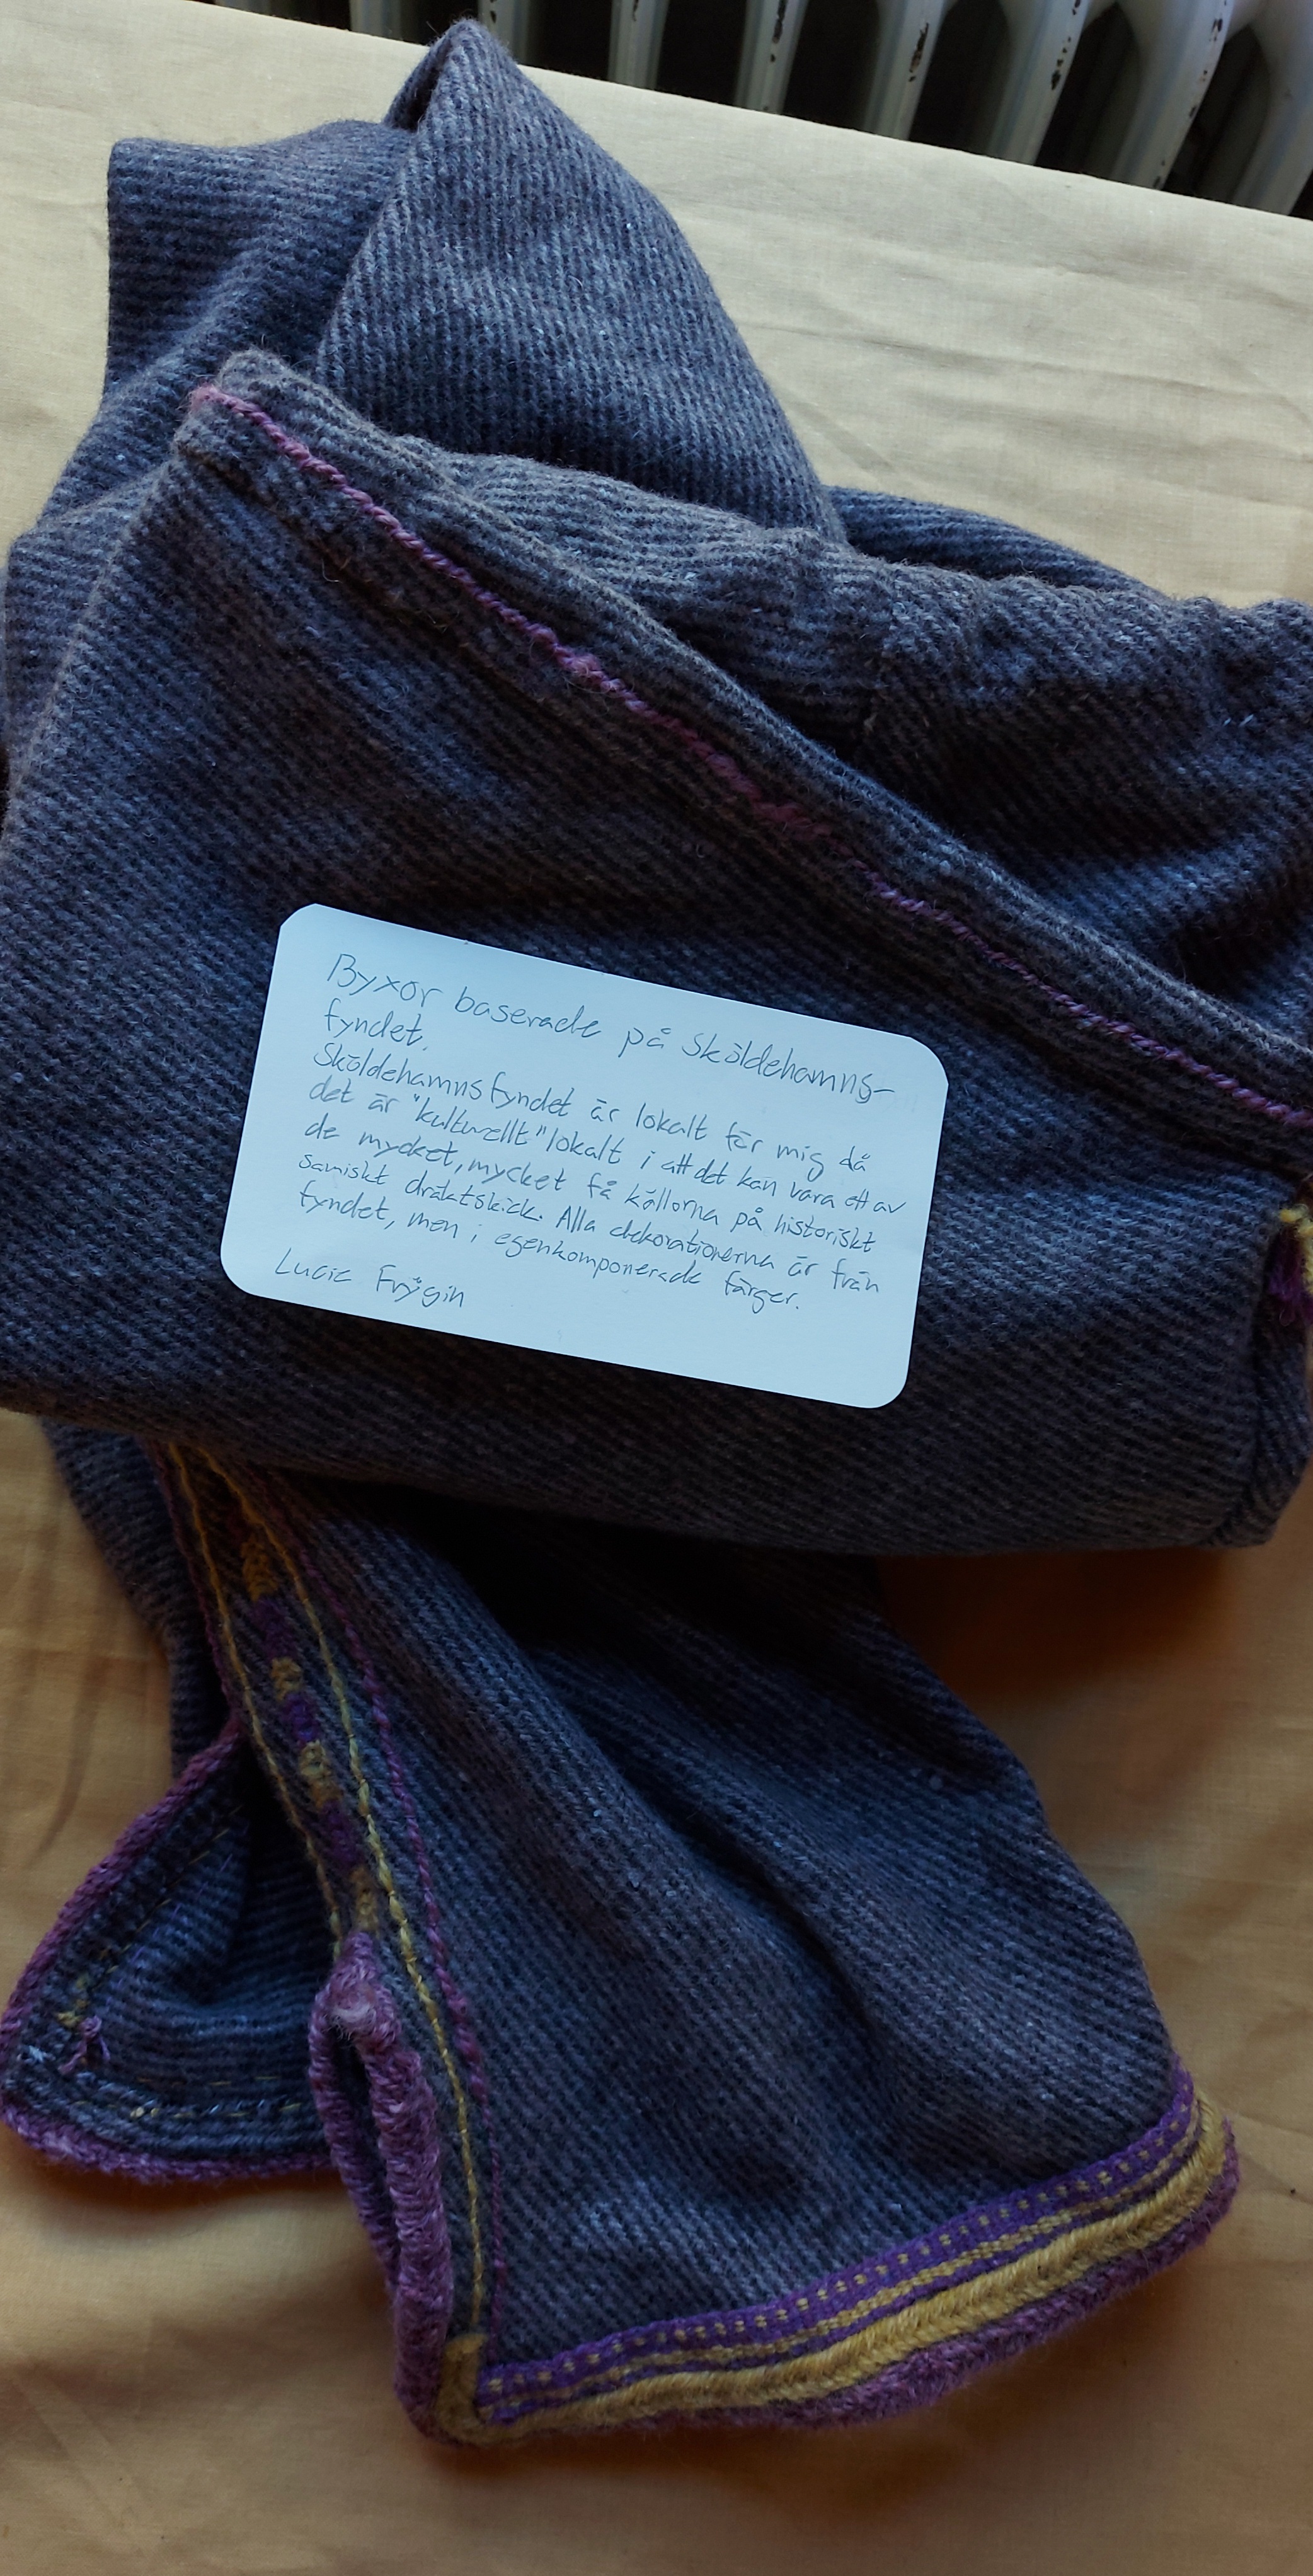 Byxor baserade på Sköldehamns-
fyndet.
Sköldehamnsfyndet är lokalt för mig då
det är "kulturellt" lokalt i att det kan vara ett av
de mycket, mycket få källorna på historiskt
samiskt dräktskick. Alla dekorationerna är från
fyndet, men i egenkomponerade färger.
Lucie